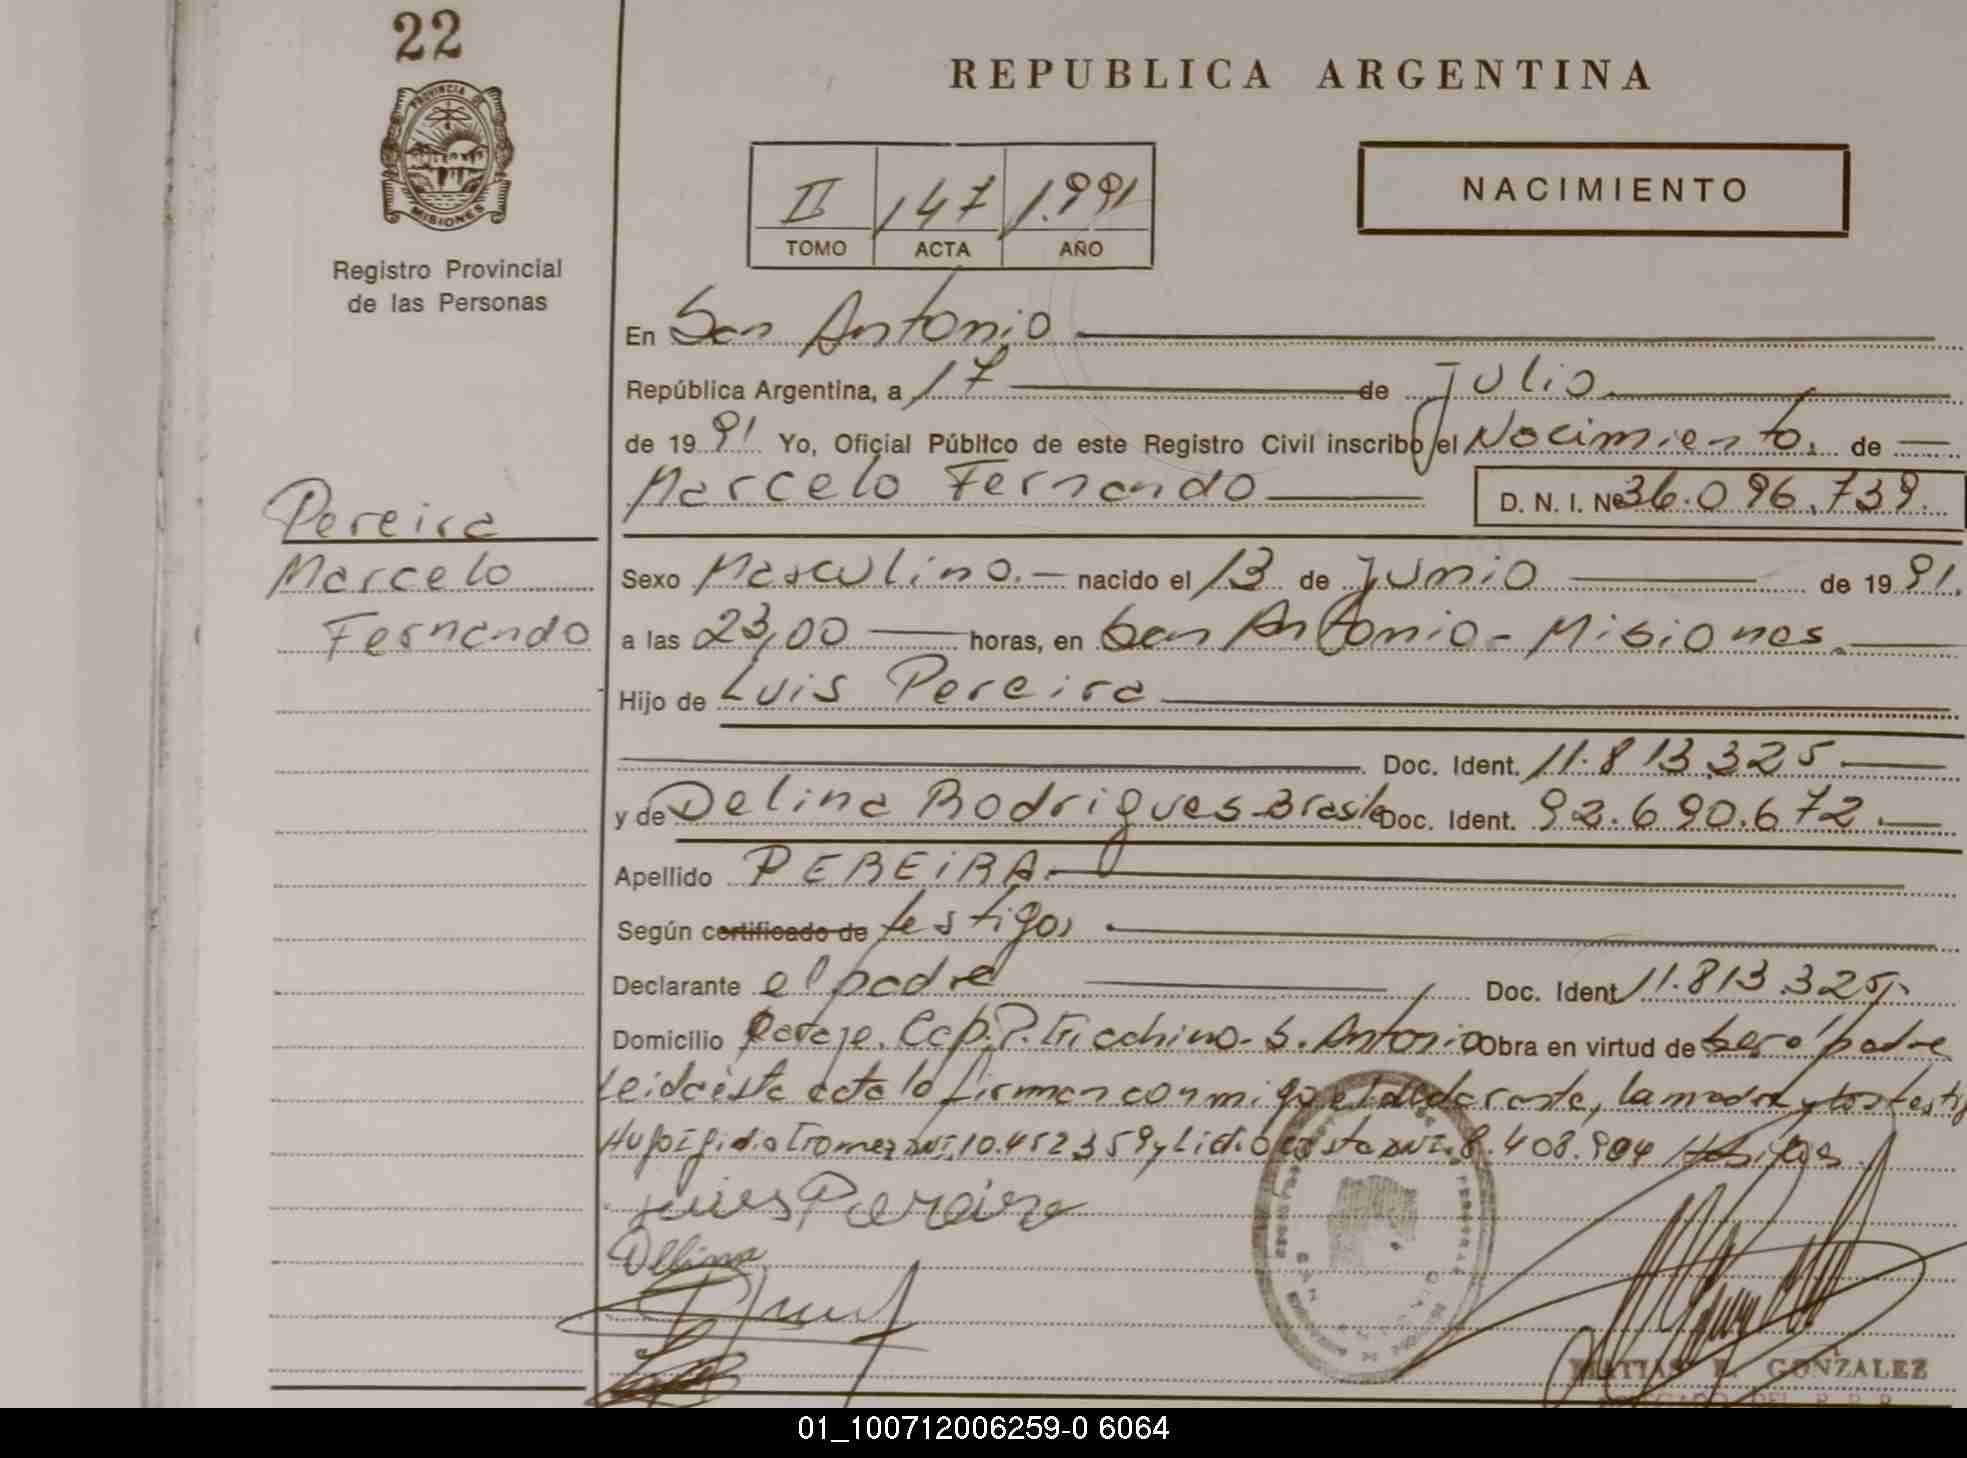 22
PROVINCIA DE
MISIONES
Registro Provincial
de las Personas
REPUBLICA ARGENTINA
NACIMIENTO
II 147 1.991
TOMO ACTA AÑO
En San Antonio
República Argentina, a 17 de Julio
de 19 91 Yo, Oficial Público de este Registro Civil inscribo el Nacimiento. de
Marcelo Fernando D. N. I. Nº 36.096.739.
Pereira
Marcelo
Fernando
Sexo Masculino. nacido el 13 de Junio de 19 91.
a las 23,00 horas, en San Antonio - Misiones.
Hijo de Luis Pereira
Doc. Ident. 11.813.325
y de Delina Rodrigues Brasile Doc. Ident. 92.690.672.
Apellido PEREIRA.
Según certificado de testigos
Declarante el padre Doc. Ident 11.813.325.
Domicilio Paraje. Cap. P. - S. Antonio Obra en virtud de ser el padre
Leida esta acta la firman conmigo el declarante, la madre y los testig
Hugo DNI. 10.452.359 y DNI. 8.408.904
Luis Pereira
Dellina
MATIAS GONZALEZ
DEL R. P. P.
01_100712006259-0 6064